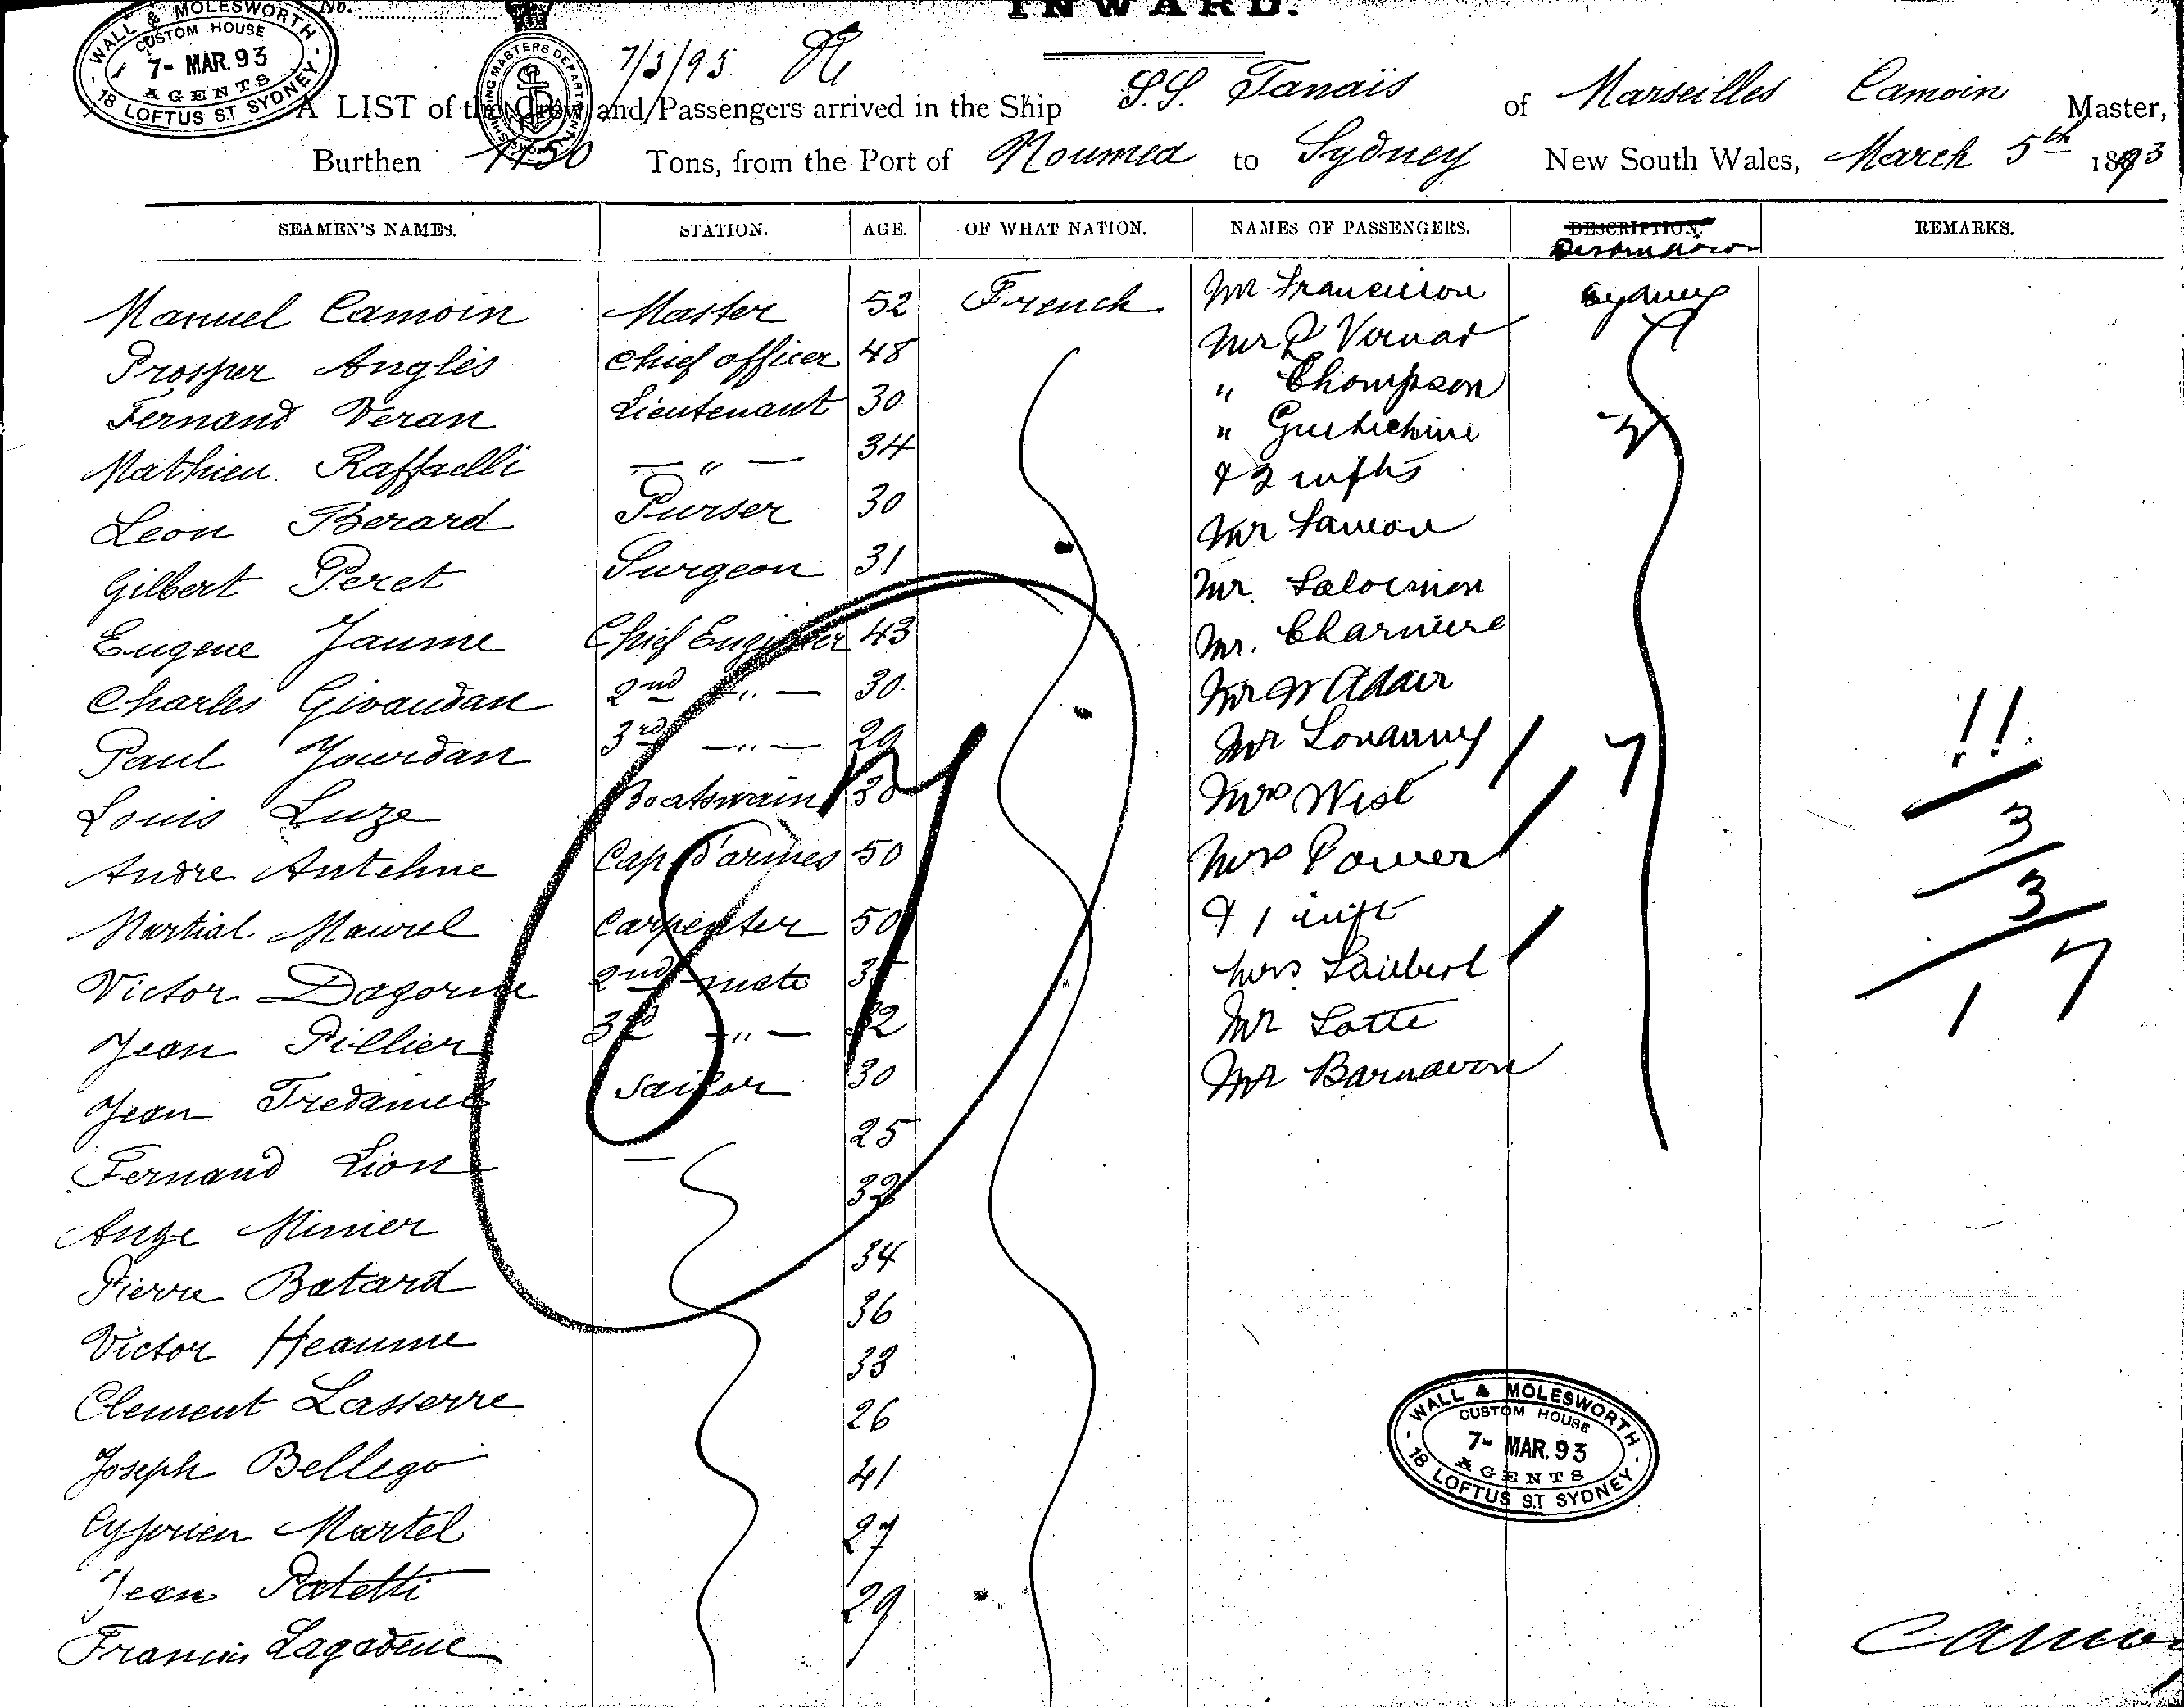 No.
INWARD.
WALL & MOLESWORTH
CUSTOM HOUSE
7- MAR. 93
AGENTS
18 LOFTUS ST SYDNEY
7/3/93
A LIST of the Crew and Passengers arrived in the Ship S.S. Tanaïs of Marseilles Camoin Master,
Burthen 1150 Tons, from the Port of Noumea to Sydney New South Wales, March 5th 1893
SEAMEN'S NAMES. STATION. AGE. OF WHAT NATION. NAMES OF PASSENGERS. DESCRIPTION. REMARKS.
Destination
Manuel Camoin Master 52 French Mr Sydney
Prosper Anglès Chief officer 48 Mr
Fernand Veran Lieutenant 30 " Thompson
Mathieu Raffaelli — " — 34 "
Leon Berard Purser 30 & infts
Gilbert Peret Surgeon 31 Mr
Eugene Jaume Chief Engineer 43 Mr.
Charles Givaudan 2nd — " — 30 Mr. Charriere
Paul Jourdan 3rd — " — 29 Mr W Adair
Louis Luze Boatswain 30 Mr
Andre Cap. d'armes 50 Mrs West
Martial Maurel Carpenter 50 Mrs Power
Victor Dagorne 2nd mate & 1 inft
Jean Pillier 3rd — " — 32 Mrs
Jean Tredaniel Sailor 30 Mr Lotte
Fernand Lion — 25 Mr Barnavon
Ange Minier 32
Pierre Batard 34
Victor Heaume 36
Clement Lasserre 33
Joseph Bellego 26
Cyprien Martel 41
Jean Poletti 27
Francis Lagadeuc 29
11
3
3
17
WALL & MOLESWORTH
CUSTOM HOUSE
7- MAR. 93
AGENTS
18 LOFTUS ST SYDNEY